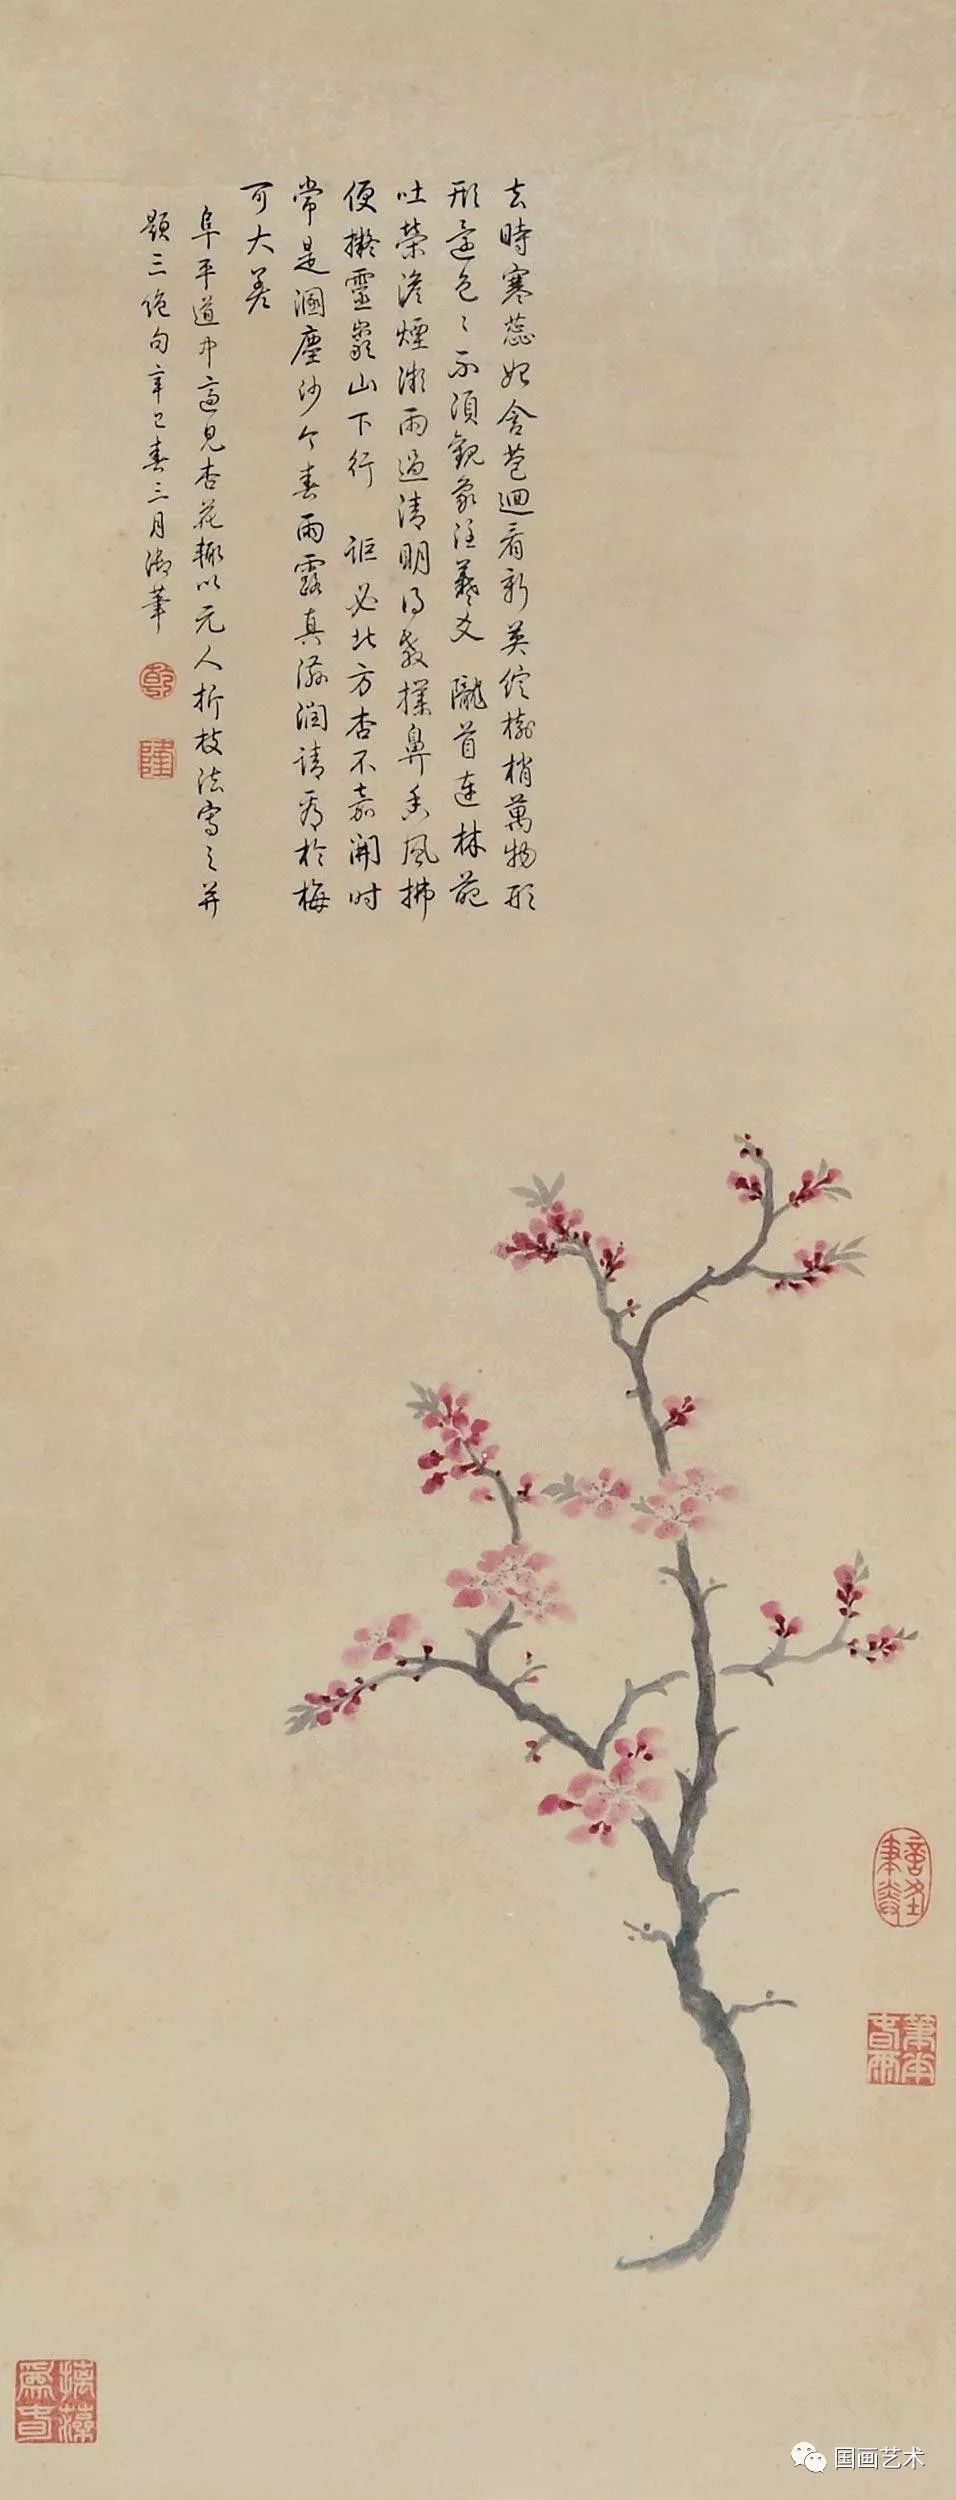 去時寒蕊始含苞迴看新英綻樹梢萬物形
形還色々不須觀象注羲爻 隴首連林葩
吐榮澹煙微雨過清明教撲鼻香風拂
便擬靈巖山下行 詎必北方杏不嘉開時
常是溷塵沙今春雨露真滋潤請看於梅
可大差
阜平道中適見杏花輒以元人折枝法寫之并
題三絕句辛巳春三月御筆
乾
隆
摛藻
為春
国画艺术